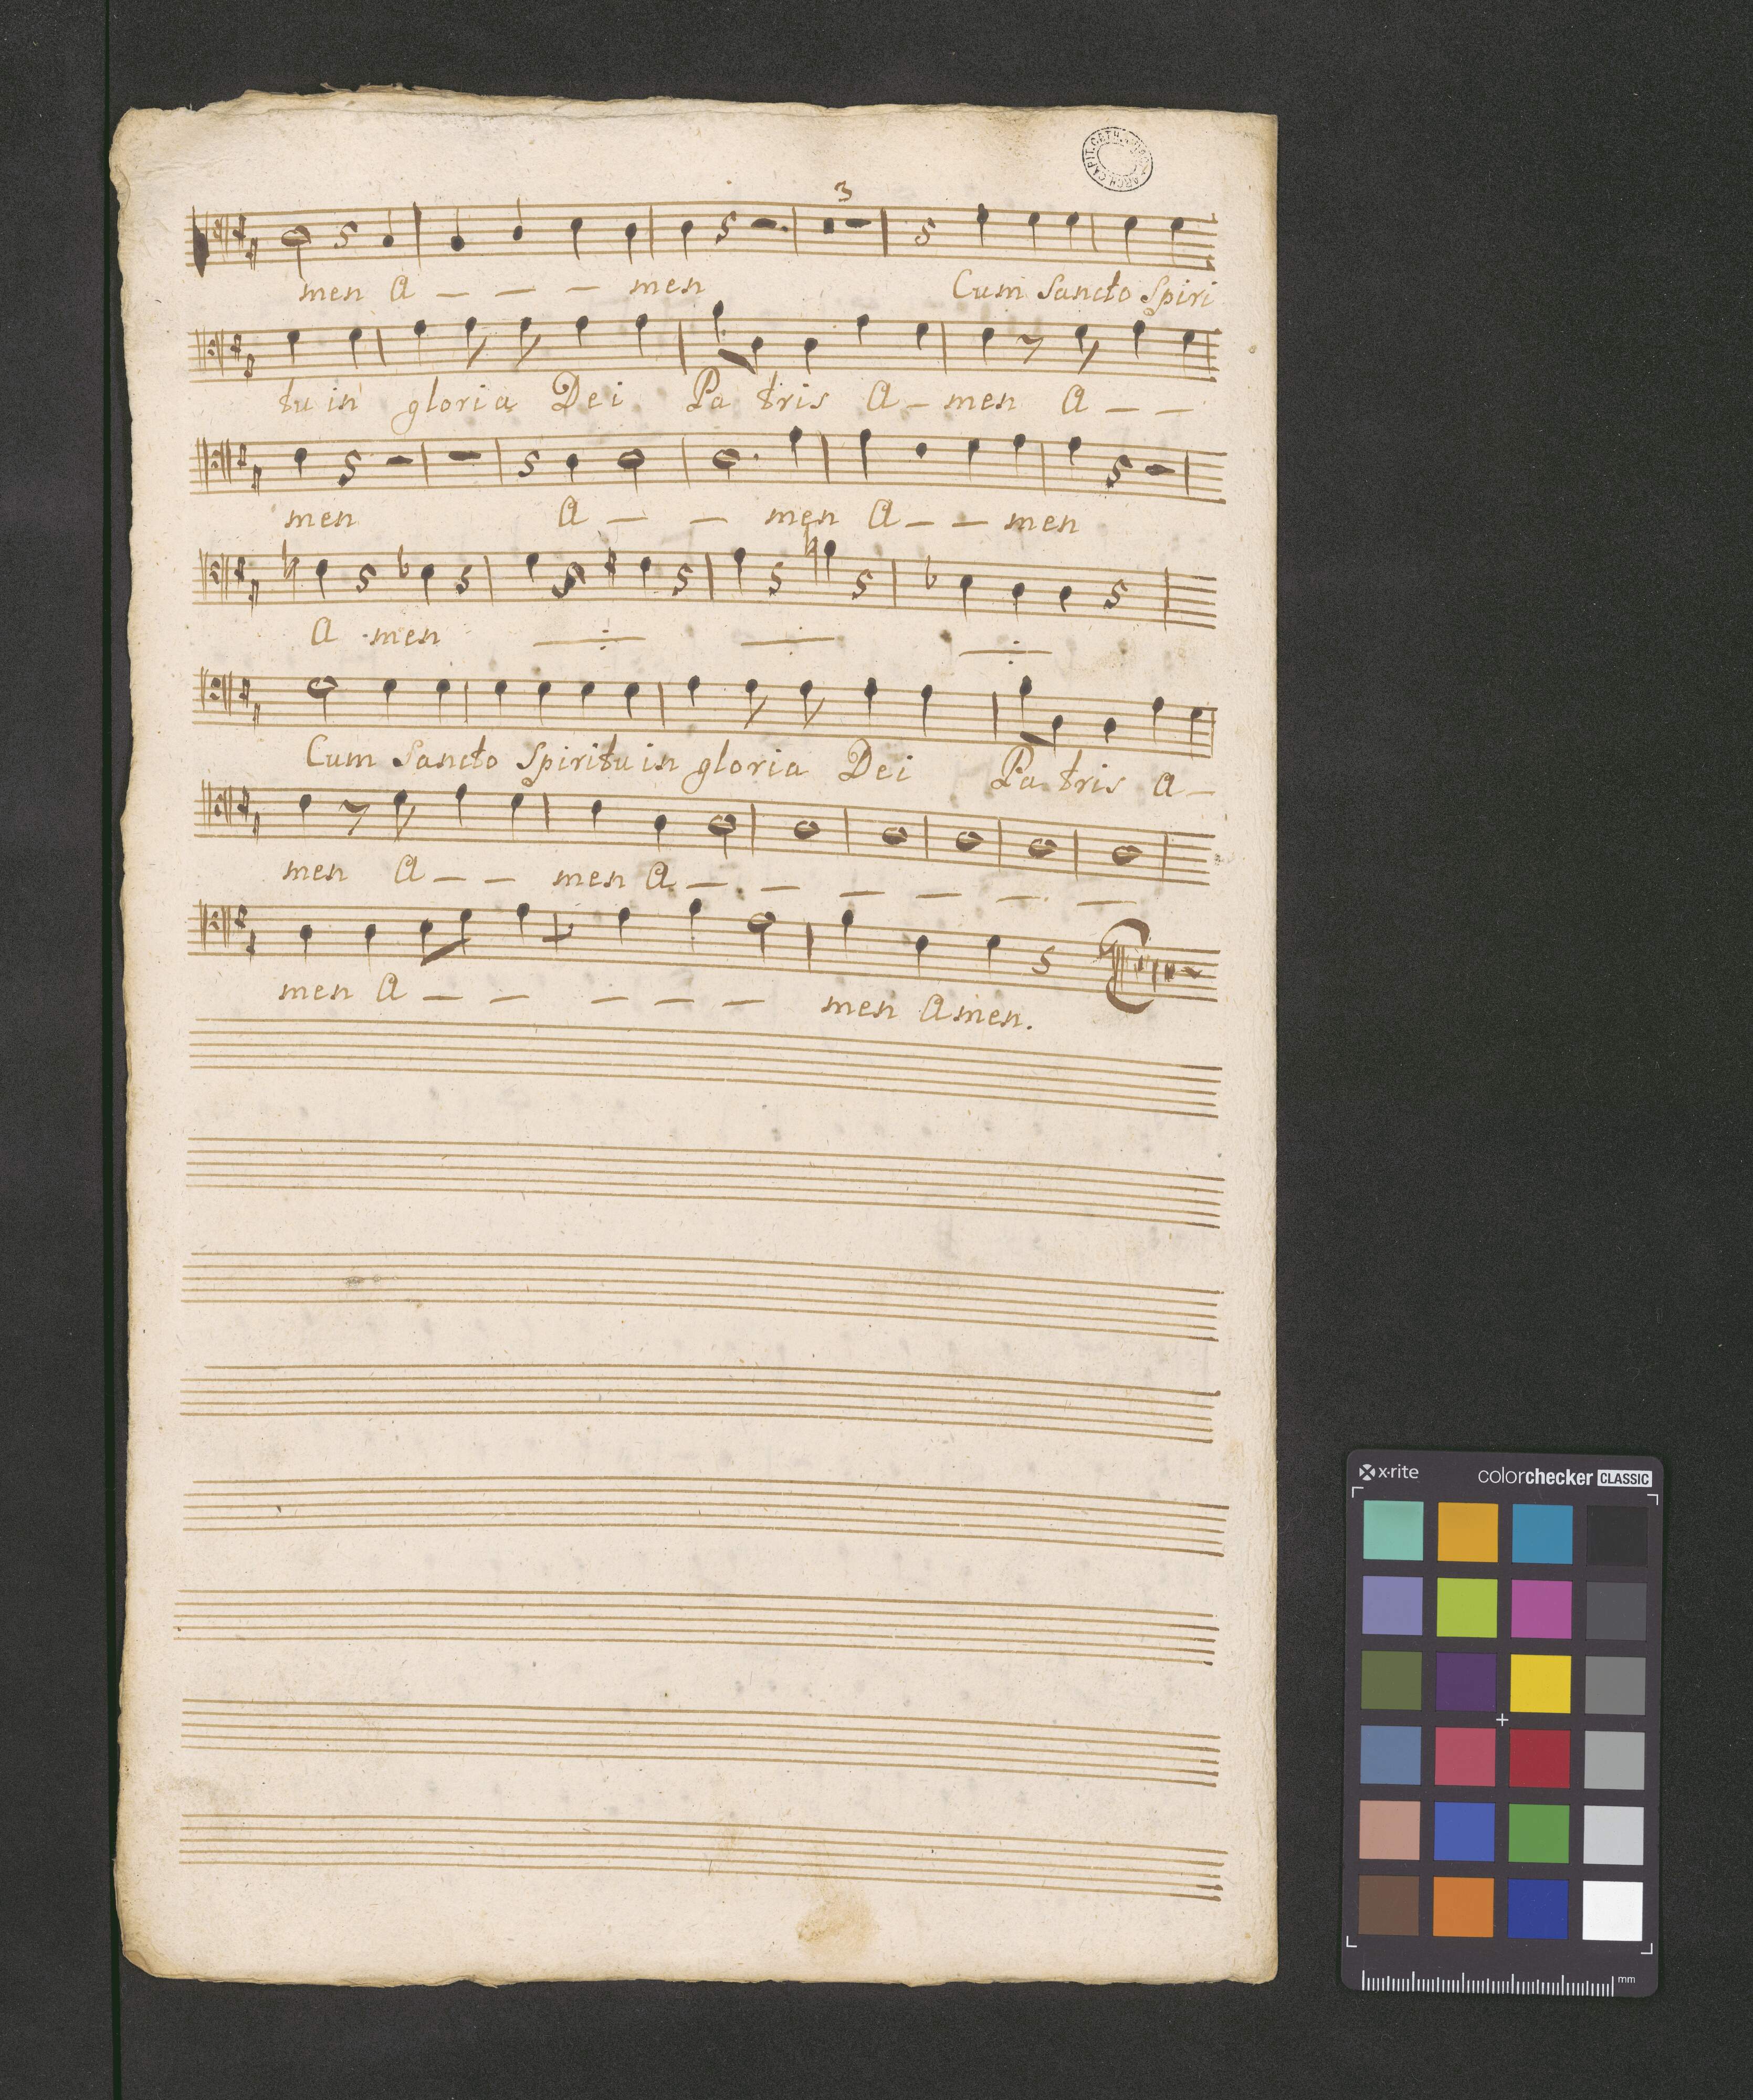 3
men A _ _ _ men Cum Sancto Spiri
tu in gloria Dei Pa tris A - men A _ _
men A _ _ men A _ _ men
A men
Cum Sancto Spiritu in gloria Dei Pa tris A _
men A _ _ men A _ _ _ _ _ _
men A _ _ _ _ _ men Amen.
x·rite colorchecker CLASSIC
mm